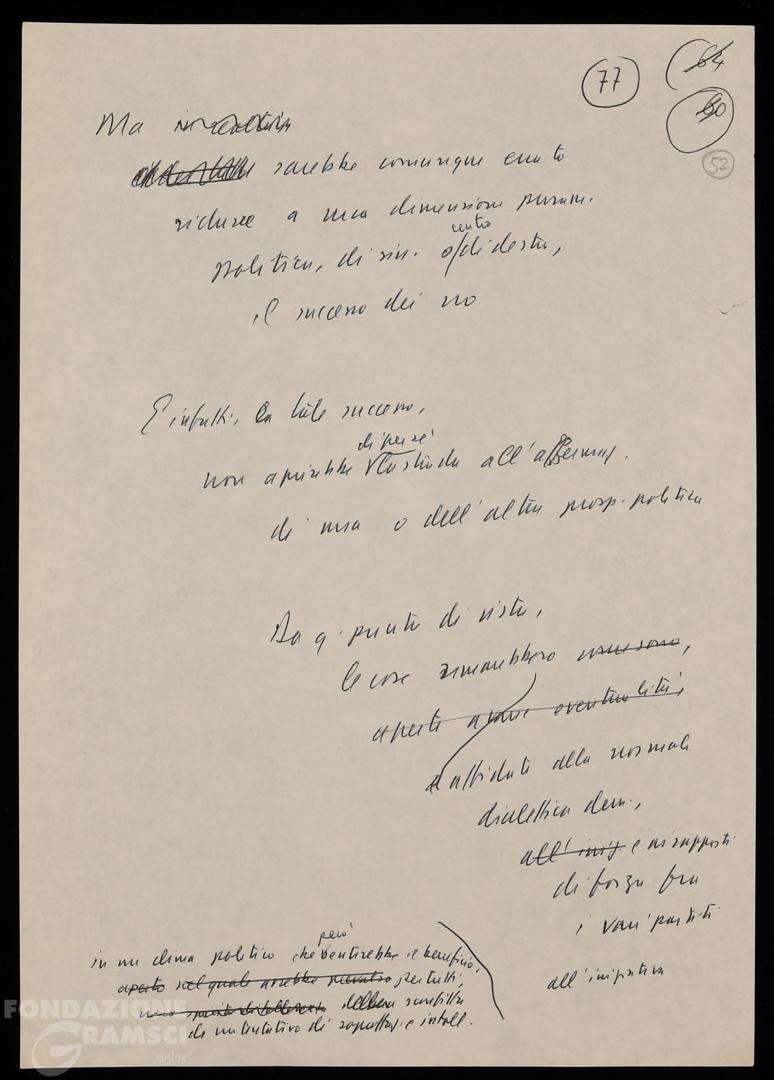 77
64
60
52
Ma
sarebbe comunque errato
ridurre a una dimensione puram.
centro
politica, di sin. o di destra,
il successo dei no
E infatti, un tale successo,
di per sé
non aprirebbe la strada all'affermaz.
di una o dell'altra prosp. politica
Da q. punto di vista,
le cose rimarrebbero come sono,
aperte a varie eventualità,
affidate alla normale
dialettica dem.,
all'iniz. e ai rapporti
di forza fra
i vari partiti
all'iniziativa
però
in un clima politico che sentirebbe il beneficio,
aperto nel quale sarebbe per tutti,
uno spirito di tolleranza della sconfitta
di un tentativo di sopraffaz. e intoll.
FONDAZIONE
GRAMSCI
onlus